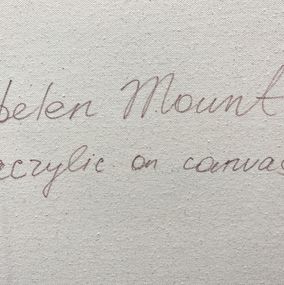 belen Mount
acrylic on canvas